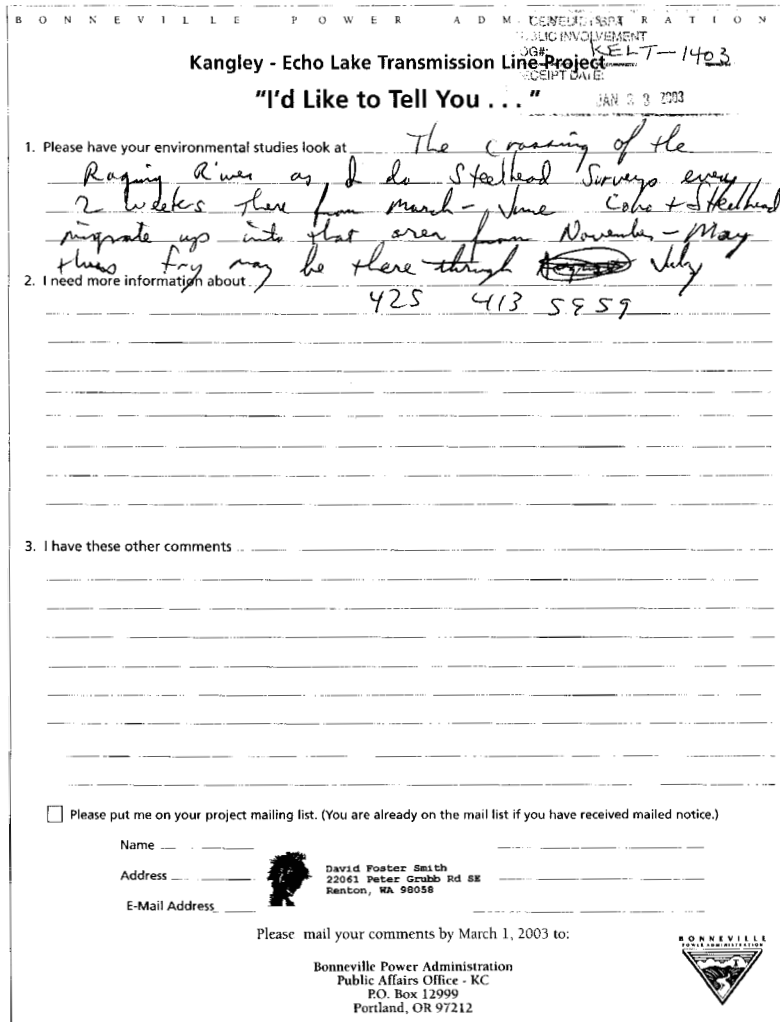 BONNEVILLE POWER ADM RATION
PUBLIC INVOLVEMENT
LOG#: KELT-1403
RECEIPT DATE:
Kangley - Echo Lake Transmission Line Project
"I'd Like to Tell You . . . "
JAN 2 3 2003
1. Please have your environmental studies look at The crossing of the
Raging River as I do Steelhead Surveys every
2 weeks there from march - June Coho + Steelhead
migrate up into that area from November - May
thus fry may be there through July
2. I need more information about
425 413 5959
3. I have these other comments
Please put me on your project mailing list. (You are already on the mail list if you have received mailed notice.)
Name
Address
E-Mail Address
David Foster Smith
22061 Peter Grubb Rd SE
Renton, WA 98058
Please mail your comments by March 1, 2003 to:
Bonneville Power Administration
Public Affairs Office - KC
P.O. Box 12999
Portland, OR 97212
BONNEVILLE
POWER ADMINISTRATION